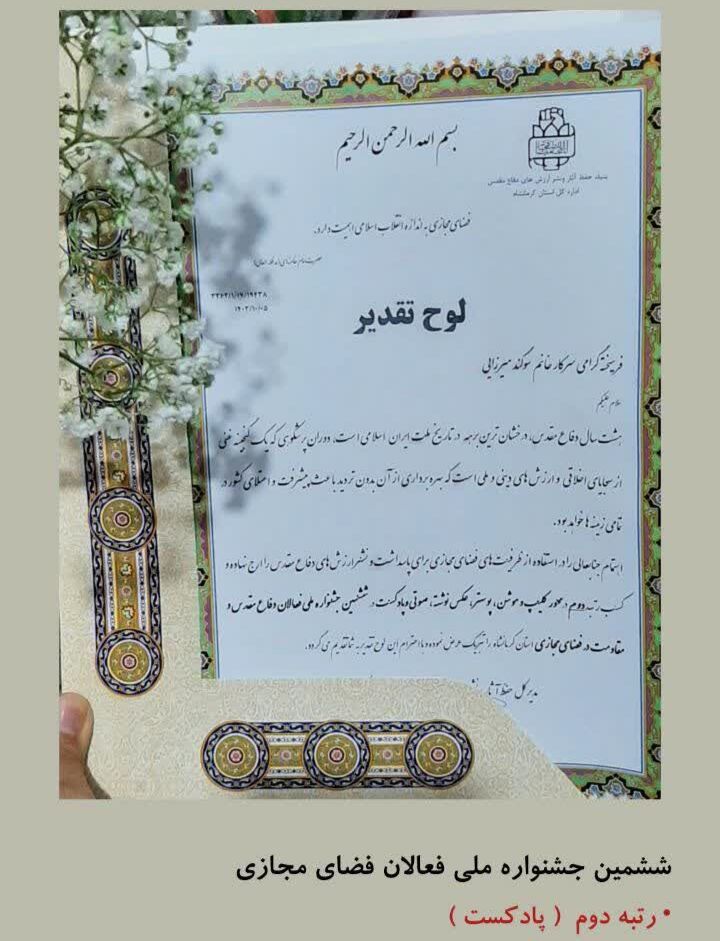 بسم الله الرحمن الرحیم
بنیاد حفظ آثار و نشر ارزش های دفاع مقدس
اداره کل استان کرمانشاه
فضای مجازی به اندازه انقلاب اسلامی اهمیت دارد.
حضرت امام خامنه‌ای
۳۳۶۳/۱/۷۶/۱۹۴۳۸
۱۴۰۳/۱۰/۰۵
لوح تقدیر
فرهیخته گرامی سرکار خانم سوگند میرزایی
سلام علیکم
هشت سال دفاع مقدس، درخشان ترین برهه در تاریخ ملت ایران اسلامی است، دوران پرشکوهی که یک گنجینه غنی
از سجایای اخلاقی و ارزش های دینی و ملی است که بهره برداری از آن بدون تردید باعث پیشرفت و اعتلای کشور در
تمامی زمینه ها خواهد بود.
اهتمام جنابعالی را در استفاده از ظرفیت های فضای مجازی برای پاسداشت و نشر ارزش های دفاع مقدس را ارج نهاده و
کسب رتبه دوم در محور کلیپ و موشن، پوستر، عکس نوشته، صوتی و پادکست در ششمین جشنواره ملی فعالان دفاع مقدس و
مقاومت در فضای مجازی استان کرمانشاه را تبریک عرض نموده و با احترام این لوح تقدیر به شما تقدیم می گردد.
مدیر کل حفظ آثار
ششمین جشنواره ملی فعالان فضای مجازی
• رتبه دوم ( پادکست )